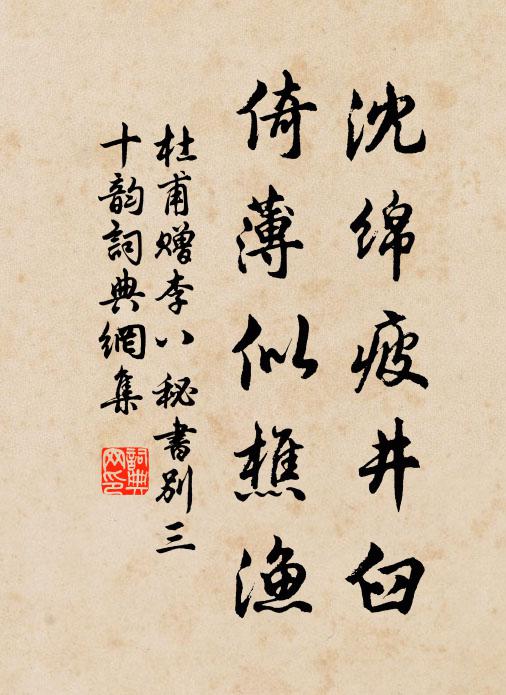 沈绵疲井臼
倚薄似樵渔
杜甫赠李八秘书别三
十韵词典網集
詞典网印